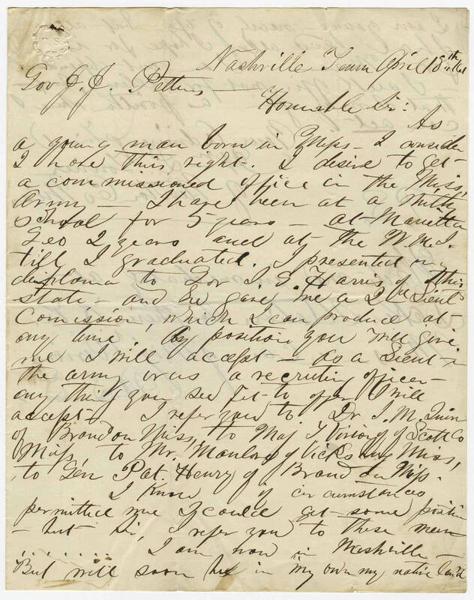 Nashville Tenn April 18th 1861
Gov J. J. Pettus
Honorable Sir: As
a young man born in Miss - I consider
I have this right. I desire to get
a commissioned office in the Miss,
Army - I have been at a Milty
School for 5 years - at Marietta
Geo 2 years and at the N. M. I.
till I graduated. I presented my
diploma to Gov I. G. Harris of this
State - and he gave me a 2nd Lieut
Comission, which I can produce at
any time. Any position you will give
me I will accept - as a Lieut -
the army or as a recruting officer -
any thing you see fit to offer I will
accept - I refer you to Dr. J. M. Quin
of Brandon Miss, to Maj of Scott Co
Miss, to Mr. of Vicksburg Miss,
to Gen Pat. Henry of Brandon Miss.
I know if circumstances
permitted me I could get some position
- but Sir, I refer you to these men
....... I am now in Nashville -
But will soon be in my own my native land